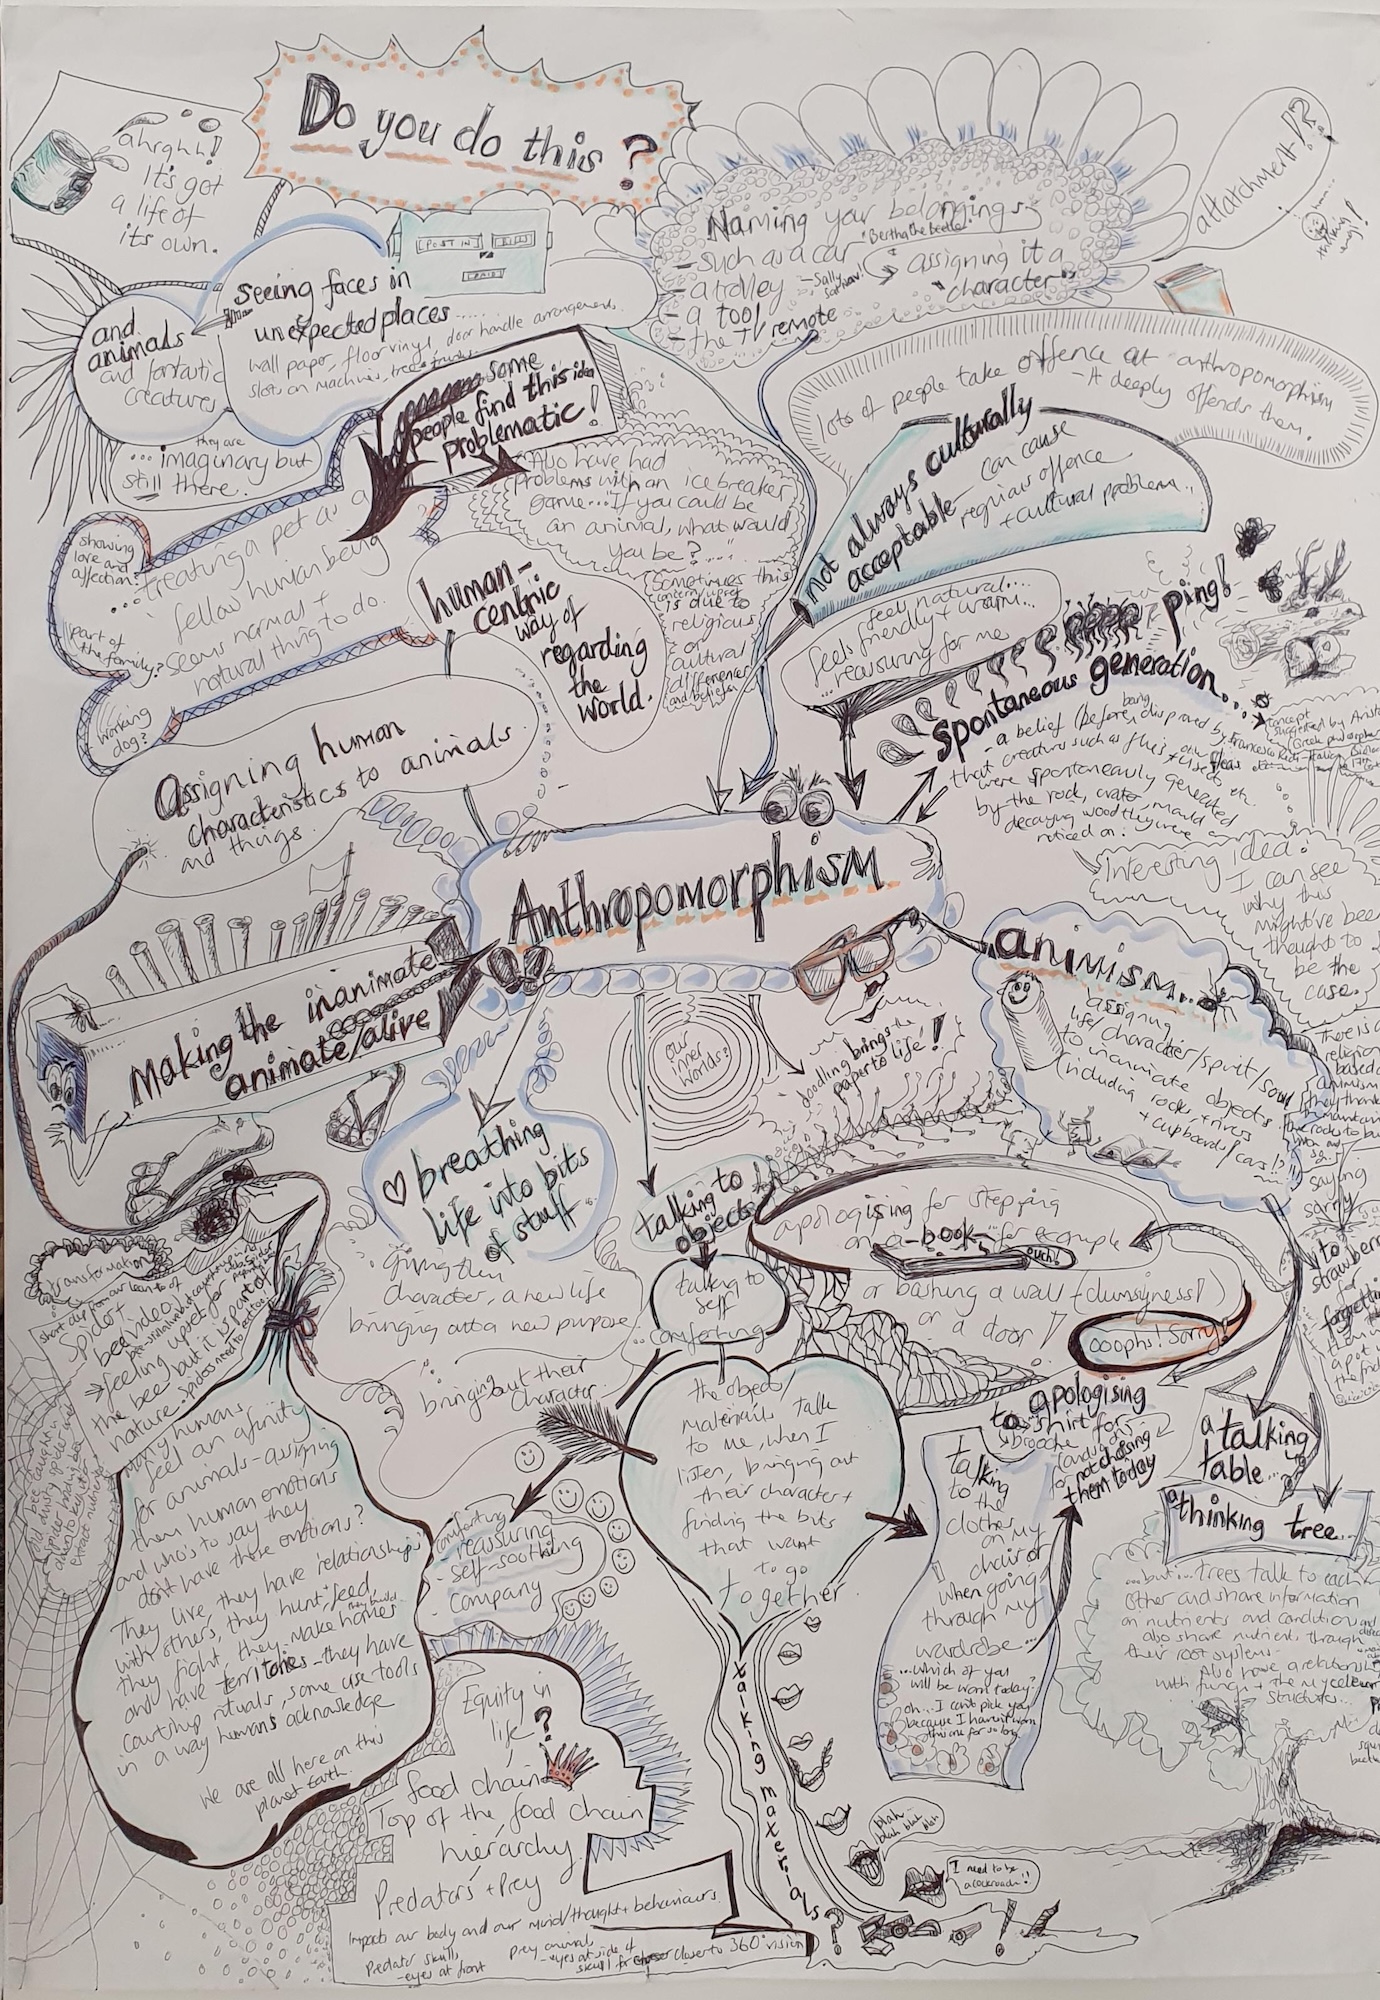 Do you do this?
ahrghh!
It's got
a life of
its own.
POST IN
BILLS
PAID
Seeing faces in
unexpected places.....
wall paper, floor vinyl, door handle arrangements,
slots on machines, tree trunks
and
animals
and fantastic
creatures
they are
... imaginary but
still there.
some
people find this idea
problematic!
Also have had
problems with an ice breaker
game... "If you could be
an animal, what would
you be?....."
Sometimes this
is due to
religious
or
cultural
differences
and beliefs.
Naming your belongings
- such as a car "Bertha the Beetle"
- a trolley
- a tool
- the TV remote
assigning it a
"character"
attatchment!?
lots of people take offence at anthropomorphism
- It deeply offends them.
not always culturally
acceptable - can cause
religious offence
+ cultural problems..
showing
love and
affection?
part of
the family?
working
dog?
...treating a pet as a
fellow human being
seems normal +
natural thing to do.
human-
centric
way of
regarding
the
world.
feels natural....
feels friendly + warm...
...reassuring for me
ping!
Spontaneous generation....
- a belief (before being disproved by Francesco Redi
that creatures such as flies
were spontaneously generated
by the rock, crater, mould or
decaying wood they were
noticed on.
Concept
suggested by
Greek philosopher
Interesting idea:
I can see
why this
might've been
thought to
be the
case.
Assigning human
characteristics to animals
and things.
Anthropomorphism
Making the inanimate
animate/alive
animism...
assigning
life/character/spirit/soul
to inanimate objects
(including rocks, + rivers
+ cupboards/cars!?"
There is a
religion
based
animism
saying
sorry
to
for
forgetting
our
inner
worlds?
doodling brings the
paper to life!
♡ breathing
life into bits
of stuff
giving them
character, a new life
bringing out a new purpose
bringing out their
character.
talking to
objects
talking to
self
comforting
apologising for stepping
on a book for example
ouch!
or bashing a wall (clumsyness!)
or a door!
ooophs! Sorry!
the object/
materials talk
to me, when I
listen, bringing out
their character +
finding the bits
that want
to go
together
comforting
- reassuring
- self-soothing
- company
apologising
to a shirt for
brooche
not choosing
them today
talking
to the
clothes
on my
chair or
when going
through my
wardrobe...
...which of you
will be worn today?
oh... I can't pick you
because I haven't worn
this one for so long
a talking
table...
a thinking tree...
...but... trees talk to each
other and share information
on nutrients and conditions
also share nutrients through
their root systems.
Also have a relationship
with fungi + the mycelium
structures...
transformation
Spider +
bee video
feeling upset for
the bee but it is part of
nature. spiders need to eat too
bee caught in
web
spider had
Many humans
feel an afinity
for animals - assigning
them human emotions
and who's to say they
dont have these emotions?
They live, they have relationships
with others, they hunt, feed,
they fight, they make homes
and have territories - they have
courtship rituals, some use tools
in a way humans acknowledge
We are all here on this
planet earth.
Equity in
life?
food chain
Top of the food chain
hierarchy
Predators + Prey
impacts our body and our mind/thought + behaviours.
Predator skull,
- eyes at front
Prey animal,
- eyes at side of
skull for closer to 360° vision
Talking materials?
blah...
blah blah blah
I need to be
a cockroach!!